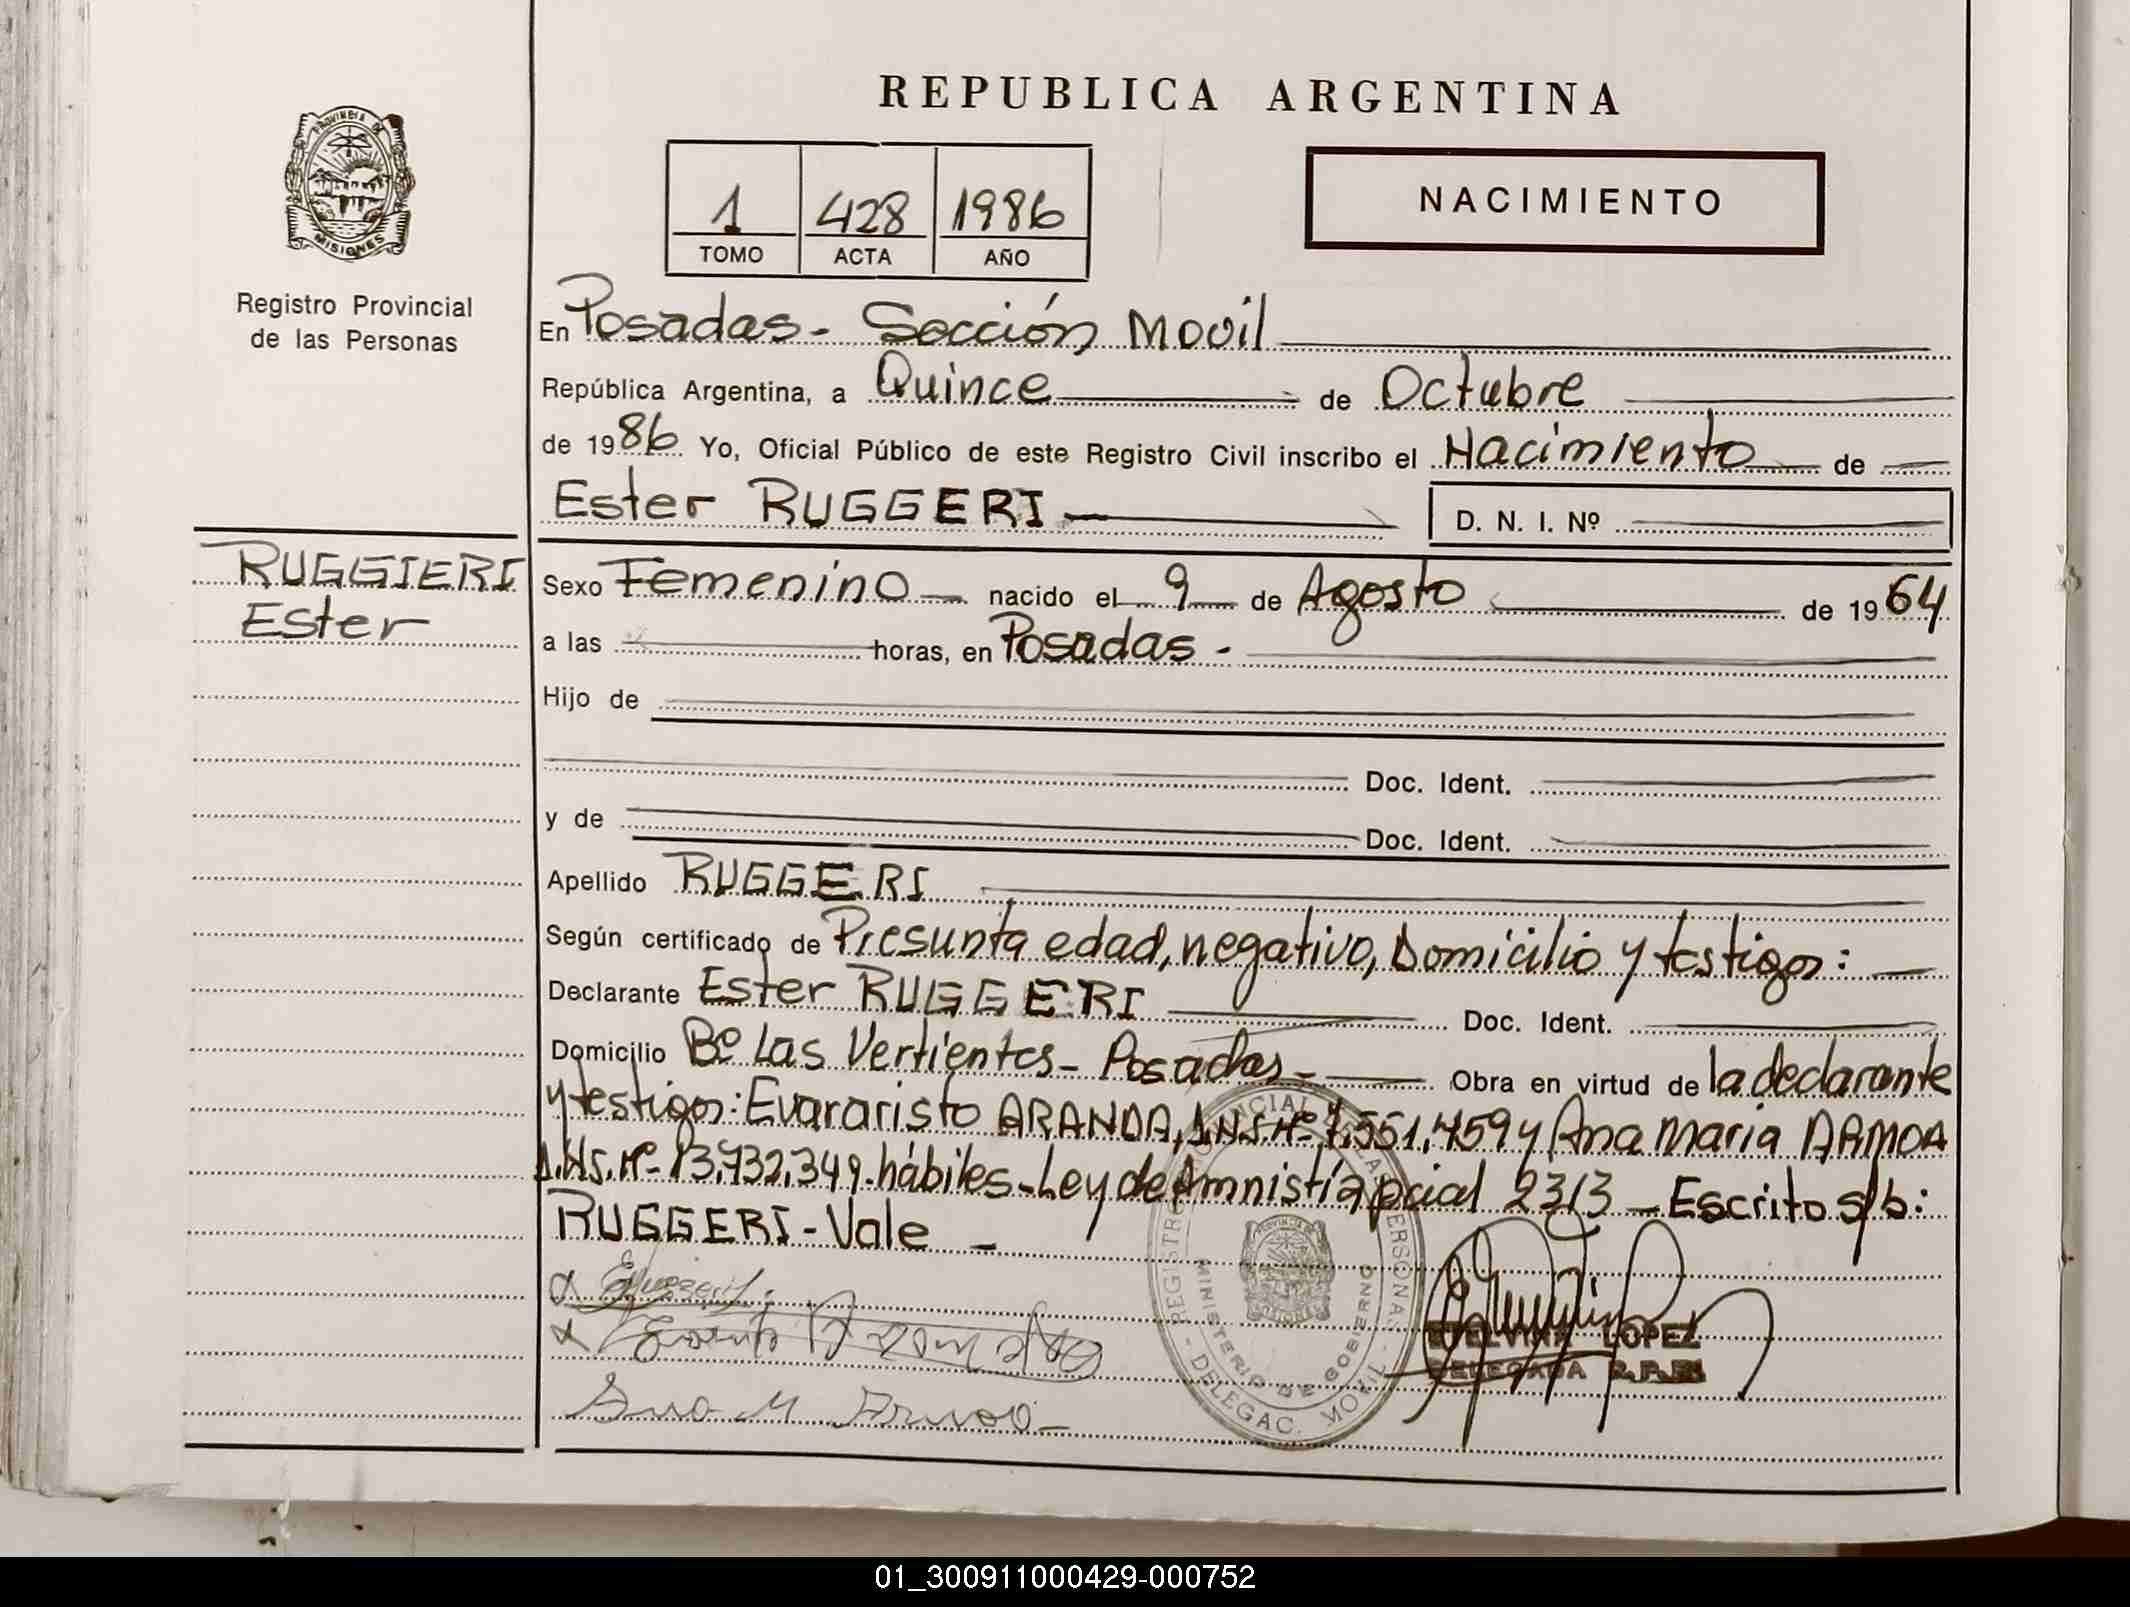 REPUBLICA ARGENTINA
PROVINCIA DE
MISIONES
Registro Provincial
de las Personas
1 428 1986
TOMO ACTA AÑO
NACIMIENTO
En Posadas - Sección Movil
República Argentina, a Quince de Octubre
de 1986 Yo, Oficial Público de este Registro Civil inscribo el Nacimiento de
Ester RUGGERI
D. N. I. Nº
RUGGIERI
Ester
Sexo Femenino nacido el 9 de Agosto de 1964
a las horas, en Posadas -
Hijo de
Doc. Ident.
y de Doc. Ident.
Apellido RUGGERI
Según certificado de Presunta edad, negativo, Domicilio y testigos:
Declarante Ester RUGGERI Doc. Ident.
Domicilio Bº Las Vertientes - Posadas - Obra en virtud de la declarante
y testigos: Evararisto ARANDA, D.N.I. Nº 7.551.459 y Ana Maria ARMOA
D.N.I. Nº 13.732.349 - hábiles - Ley de Amnistía pcial 2313 - Escrito s/b:
RUGGERI - Vale -
REGISTRO PROVINCIAL DE LAS PERSONAS
MINISTERIO DE GOBIERNO
- DELEGAC. MOVIL -
LOPEZ
DELEGADA R.P.P.
01_300911000429-000752